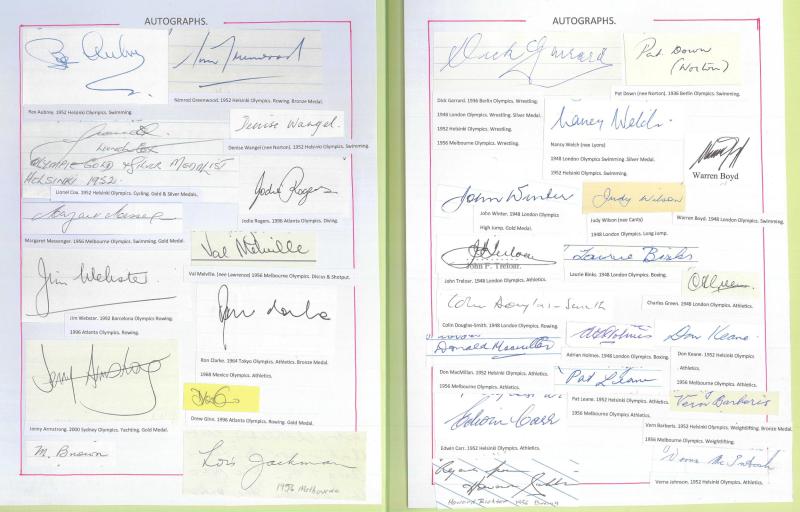 AUTOGRAPHS.
Nimrod Greenwood. 1952 Helsinki Olympics. Rowing. Bronze Medal.
Ron Aubrey. 1952 Helsinki Olympics. Swimming.
Denise Wangel.
Denise Wangel (nee Norton). 1952 Helsinki Olympics, Swimming.
Lionel Cox
OLYMPIC GOLD & SILVER MEDALIST
HELSINKI 1952.
Lionel Cox. 1952 Helsinki Olympics. Cycling. Gold & Silver Medals.
Jodie Rogers
Jodie Rogers. 1996 Atlanta Olympics. Diving.
Margaret Massenger. 1956 Melbourne Olympics, Swimming. Gold Medal.
Val Melville
Val Melville. (nee Lawrence) 1956 Melbourne Olympics. Discus & Shotput.
Jim Webster.
Jim Webster. 1992 Barcelona Olympics Rowing.
1996 Atlanta Olympics. Rowing.
Ron Clarke
Ron Clarke. 1964 Tokyo Olympics. Athletics. Bronze Medal.
1968 Mexico Olympics. Athletics.
Jenny Armstrong
Jenny Armstrong. 2000 Sydney Olympics. Yachting. Gold Medal.
Drew Ginn. 1996 Atlanta Olympics. Rowing. Gold Medal.
M. Brown
Lois Jackman
1956 Melbourne
AUTOGRAPHS.
Dick Garrard
Pat Down
(Norton)
Pat Down (nee Norton). 1936 Berlin Olympics. Swimming.
Dick Garrard. 1936 Berlin Olympics. Wrestling.
1948 London Olympics. Wrestling. Silver Medal.
1952 Helsinki Olympics. Wrestling.
1956 Melbourne Olympics. Wrestling.
Nancy Welch.
Nancy Welch (nee Lyons)
1948 London Olympics Swimming. Silver Medal.
1952 Helsinki Olympics. Swimming.
Warren Boyd
Warren Boyd. 1948 London Olympics. Swimming.
John Winter
John Winter. 1948 London Olympics
High Jump. Gold Medal.
Judy Wilson
Judy Wilson (nee Canty)
1948 London Olympics. Long Jump.
John F. Treloar.
John Treloar. 1948 London Olympics, Athletics.
Laurie Binks
Laurie Binks. 1948 London Olympics. Boxing.
Charles Green. 1948 London Olympics. Athletics.
Colin Douglas-Smith
Colin Douglas-Smith. 1948 London Olympics. Rowing
Donald Macmillan
Don MacMillan. 1952 Helsinki Olympics. Athletics.
1956 Melbourne Olympics. Athletics.
Adrian Holmes. 1948 London Olympics. Boxing.
Don Keane
Don Keane. 1952 Helsinki Olympics
1956 Melbourne Olympics. Athletics.
Pat Leane
Pat Leane. 1952 Helsinki Olympics. Athletics.
1956 Melbourne Olympics. Athletics.
Vern Barberis
Vern Barberis. 1952 Helsinki Olympics, Weightlifting. Bronze Medal.
1956 Melbourne Olympics. Weightlifting.
Edwin Carr
Edwin Carr. 1952 Helsinki Olympics. Athletics.
Verna Johnson. 1952 Helsinki Olympics, Athletics.